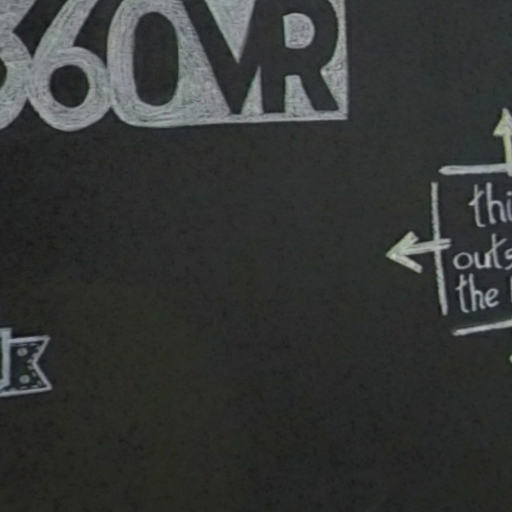 360VR
thi
outs
the